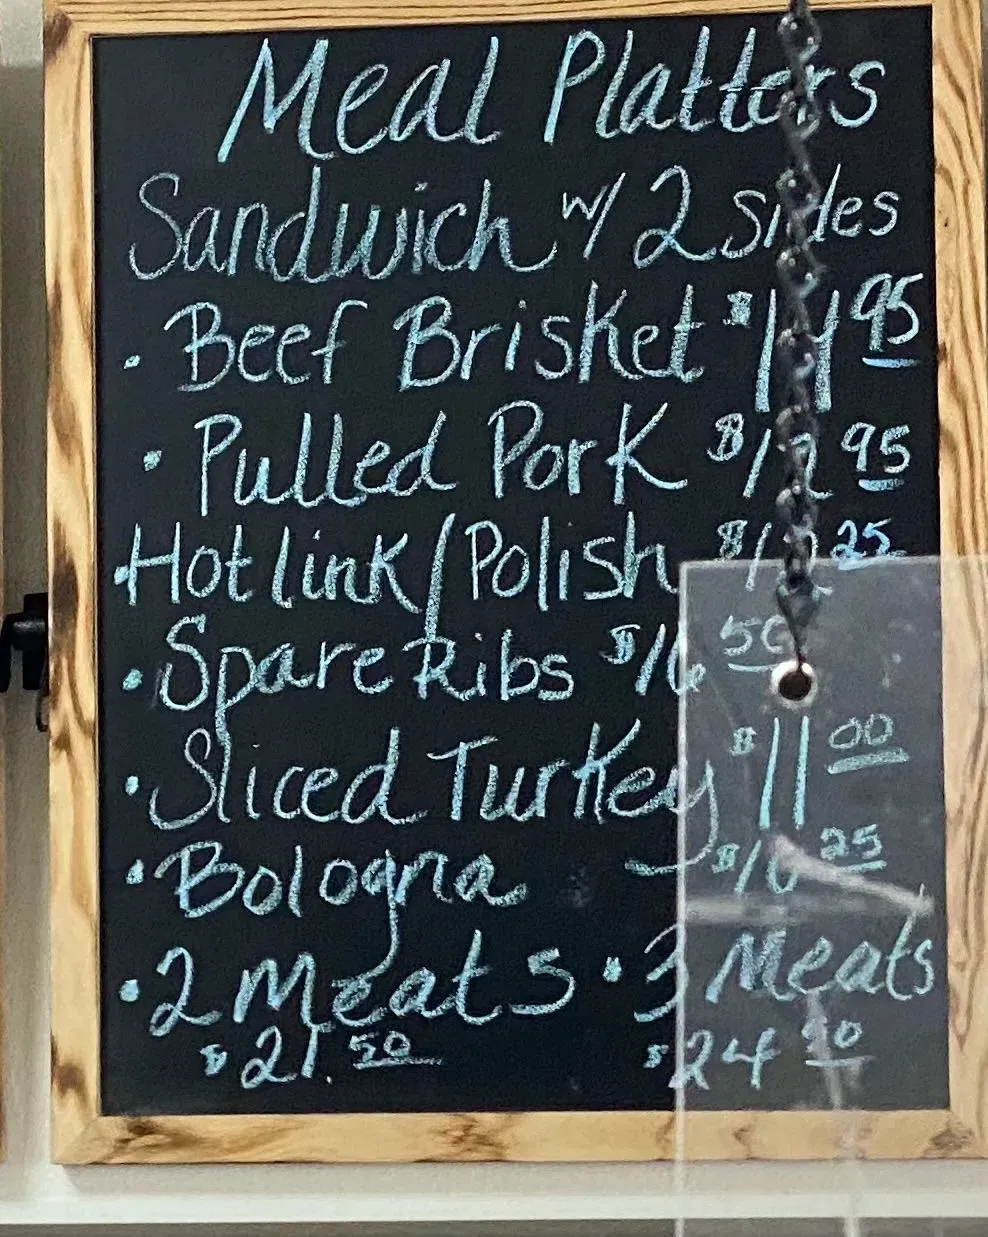 Meal Platters
Sandwich w/ 2 sides
• Beef Brisket $14 95
• Pulled Pork $12 95
• Hot link/Polish $12 25
• Spare Ribs $16 50
• Sliced Turkey $11 00
• Bologna $10 25
• 2 Meats • 3 Meats
$21 50 $24 50